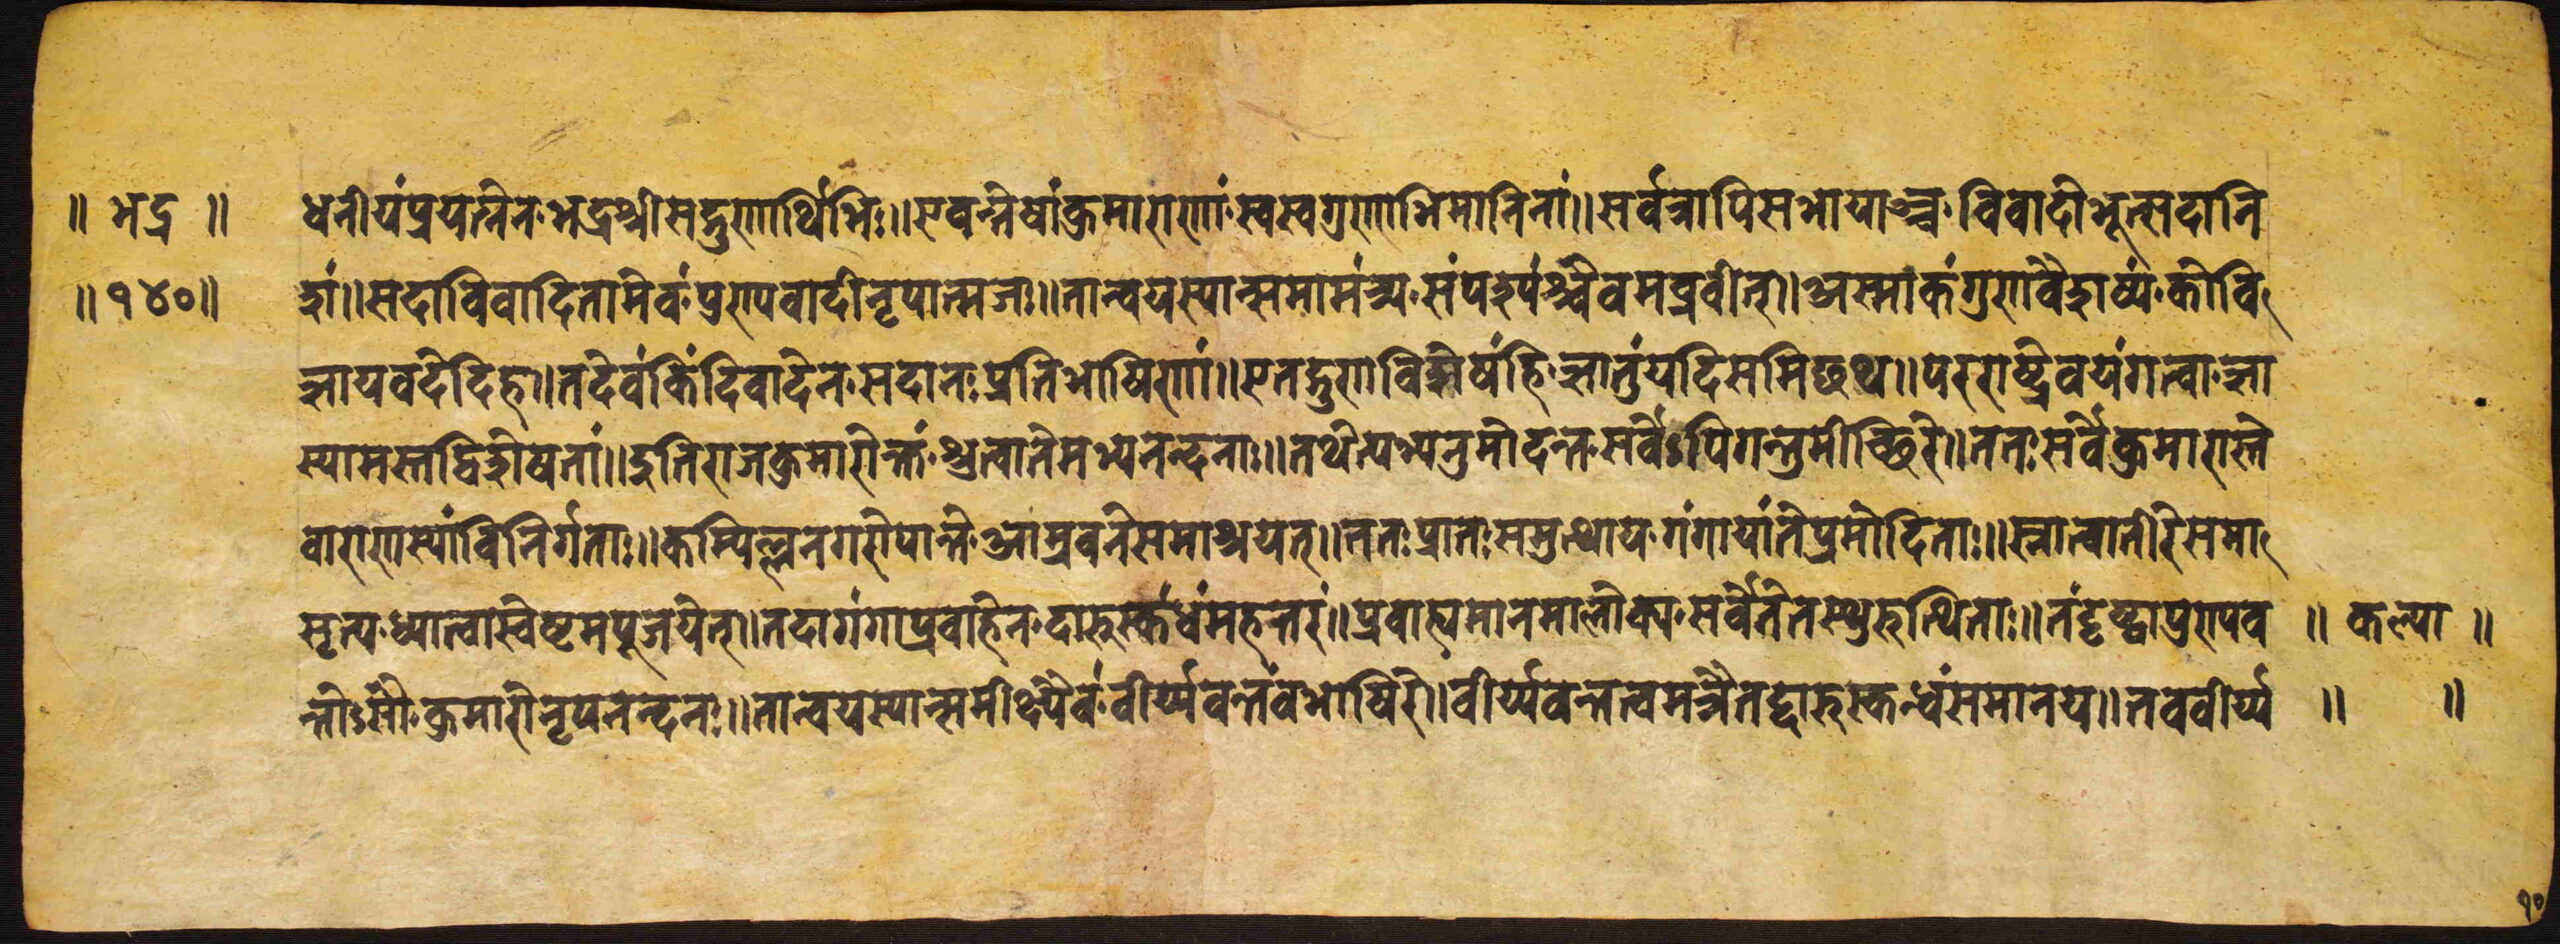 ॥ भद्र ॥ धनीयं प्रयत्नेन भद्रश्रीसद्गुणार्थिभिः॥ एवन्तेषां कुमाराणां स्वस्वगुणाभिमानिनां॥ सर्वत्रापि सभायाञ्च विवादोभूत्सदानि
॥ १४० ॥ शं॥ सदा विवादितामेवं पुण्यवादी नृपात्मजः॥ तान्वयस्यान्समामंत्र्य संपश्यंश्चैवमब्रवीत्॥ अस्माकं गुणवैशेष्यं को वि
ज्ञाय वदेदिह॥ तदेवं किं विवादेन सदा नः प्रतिभाषिणां॥ एतद्गुणविशेषं हि ज्ञातुं यदि समिच्छथ॥ परराष्ट्रे वयं गत्वा ज्ञा
स्यामस्तद्विशेषतां॥ इति राजकुमारोक्तं श्रुत्वा तेमभ्यनन्दनाः॥ तथेत्यभ्यनुमोदन्त सर्वेऽपि गन्तुमीच्छिरे॥ ततः सर्वे कुमारास्ते
वाराणस्यां विनिर्गताः॥ कम्पिल्लनगरोपान्ते आम्रवने समाश्रयेत्॥ ततः प्रातः समुत्थाय गंगायां ते प्रमोदिताः॥ स्नात्वा तीरे समा
सृत्य ध्यात्वा स्वेष्टमपूजयेत्॥ तदा गंगाप्रवाहेन दारुस्कंधं महत्तरं॥ प्रवाह्यमानमालोक्य सर्वे ते तस्थुरुत्थिताः॥ तं दृष्ट्वा पुण्यव ॥ कल्या ॥
न्तोऽसौ कुमारो नृपनन्दनः॥ तान्वयस्यान्समीक्ष्यैवं वीर्य्यवन्तं वभाषिरे॥ वीर्य्यवन्तत्वमत्रैतद्दारुस्कन्धं समानय॥ तव वीर्य्य ॥ ॥
१०